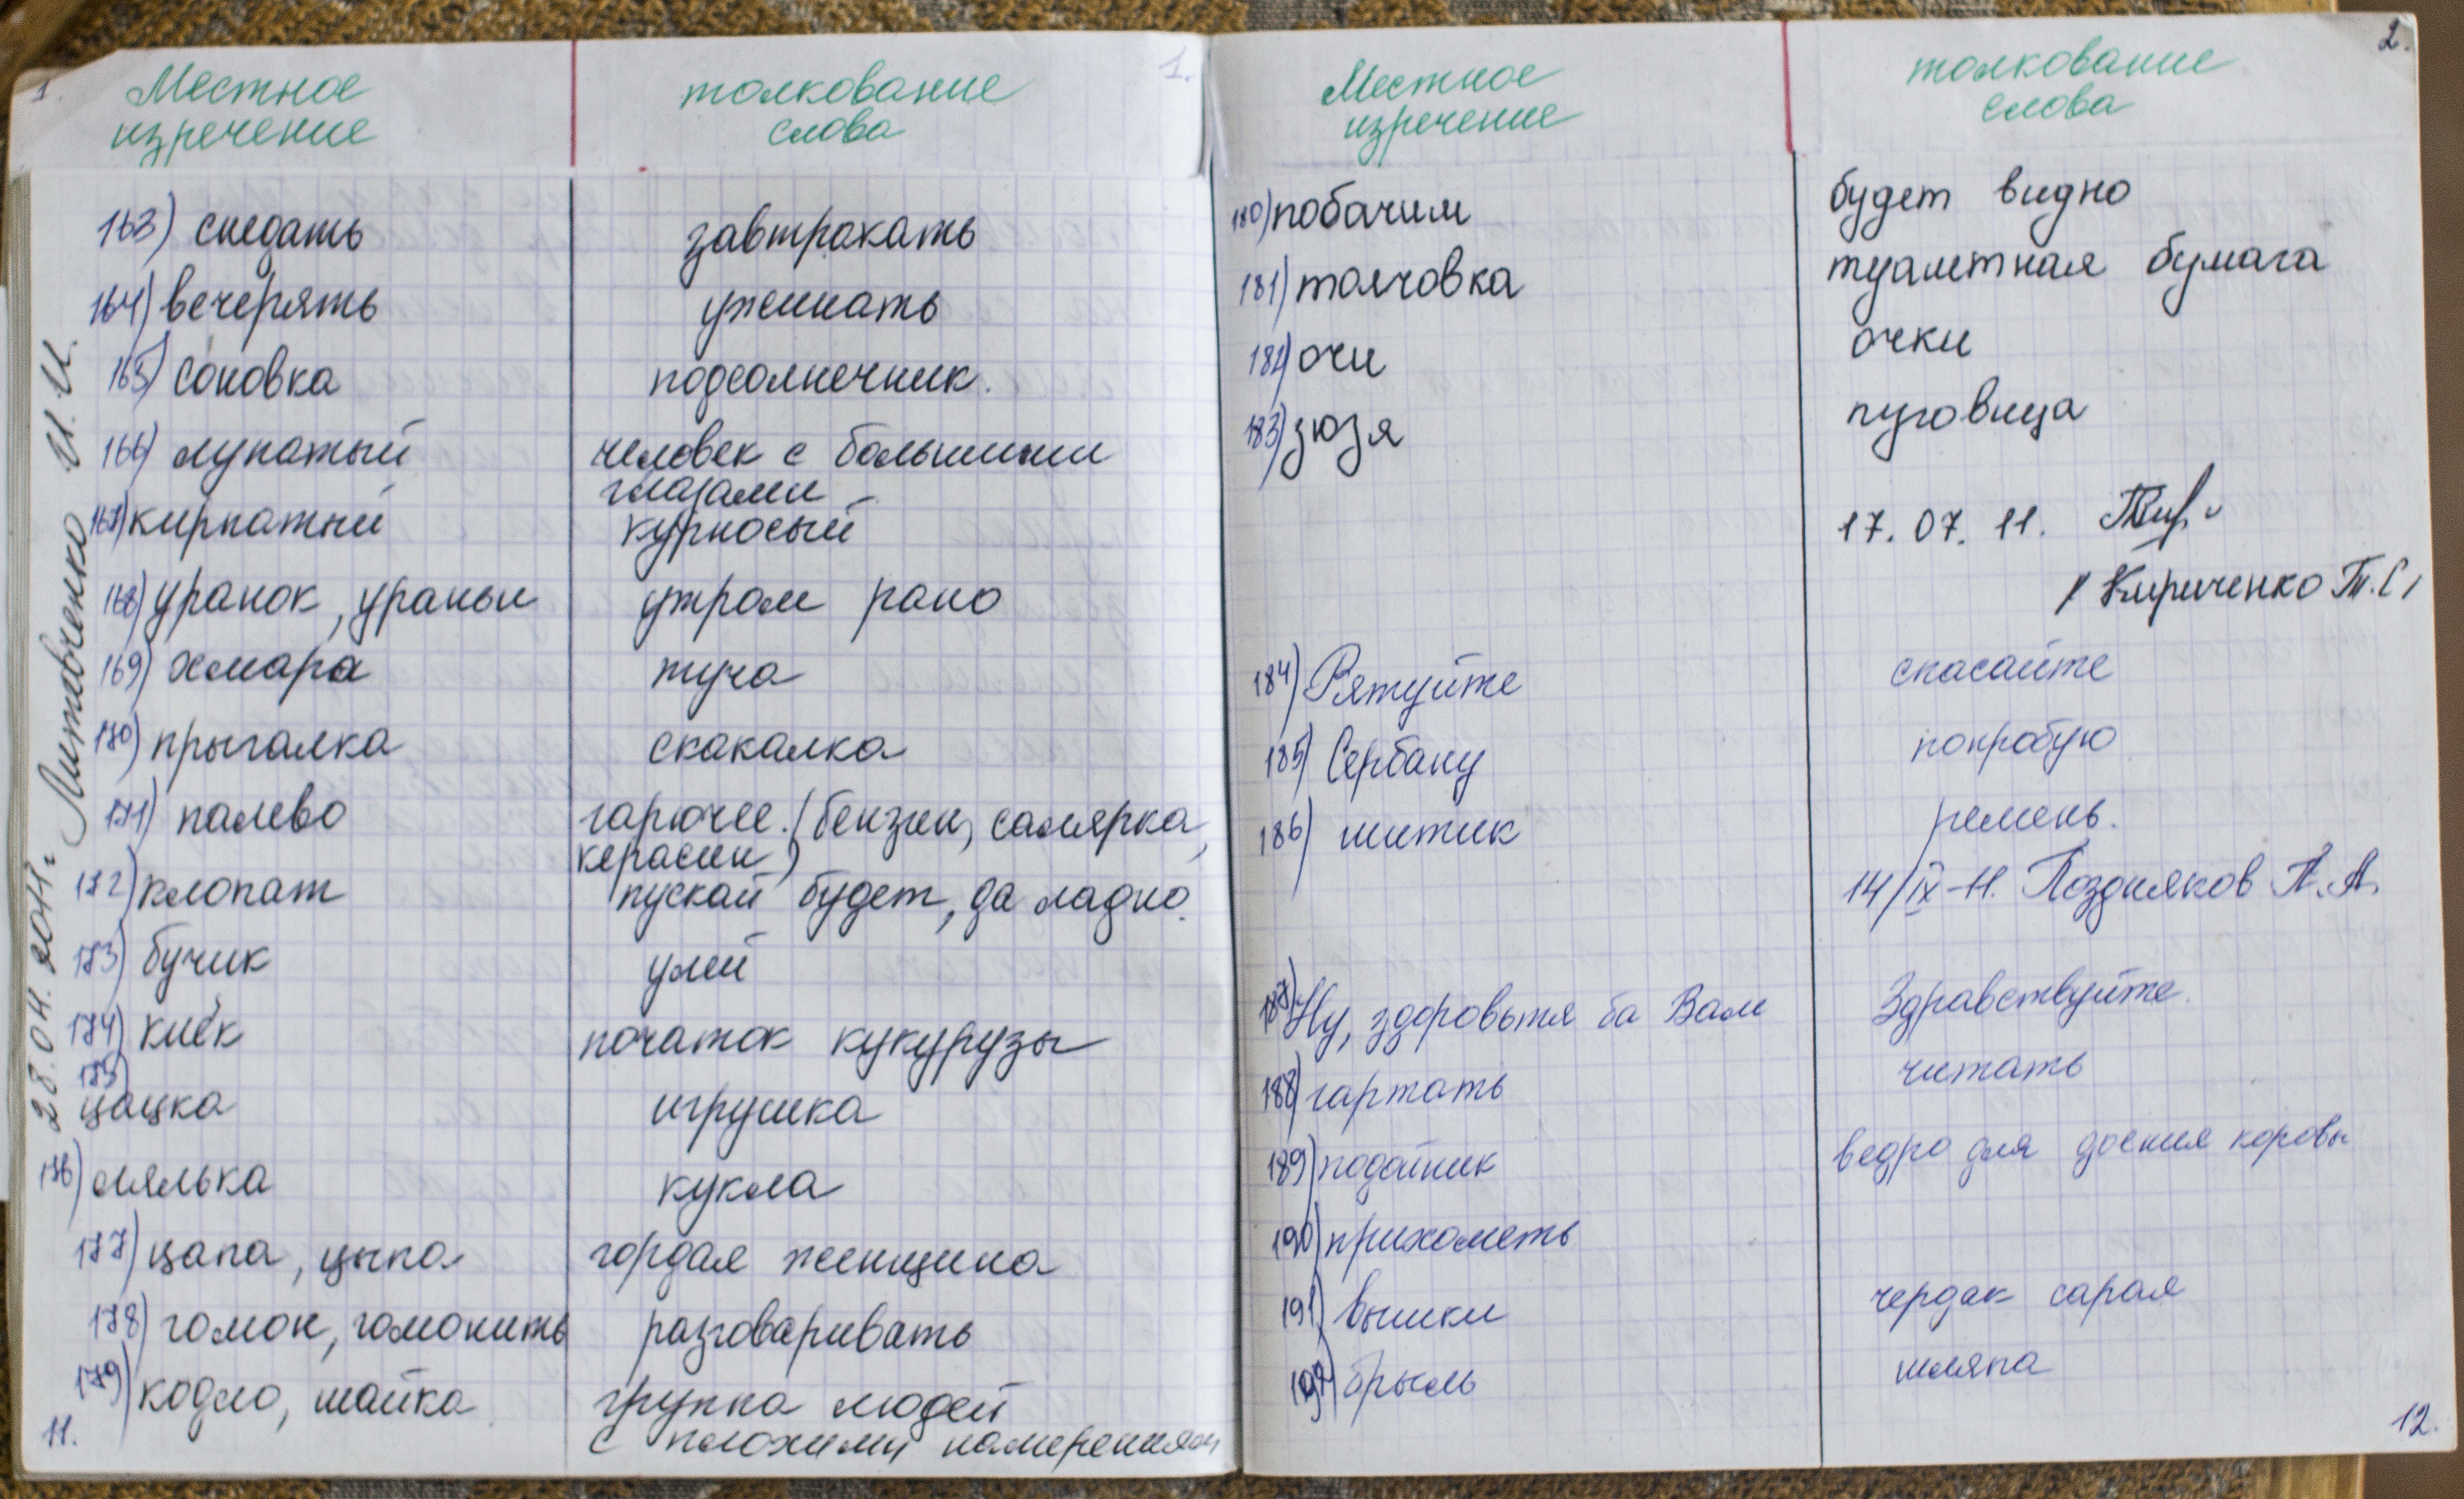 1.
Местное
изречение
толкование
слова
1.
163) снедать завтракать
164) вечерять ужинать
165) соновка подсолнечник.
166) лупатый человек с большими
глазами
167) кирпатый курносый
168) уранок, ураньи утром рано
169) хмара туча
170) прыгалка скакалка
171) палево гарючее. (бензин, салярка,
керасин)
172) клопат пускай будет, да ладно.
173) бучик улей
174) киёк початок кукурузы
175)
цацка игрушка
176) лялька кукла
177) цапа, цыпа гордая женщина
178) гомон, гомонить разговаривать
179) кодло, шайка группа людей
с плохими намерениями
11.
28.04.2011г. Литовченко И. И.
2.
Местное
изречение
толкование
слова
180) побачим будет видно
181) толчовка туалетная бумага
182) очи очки
183) зюзя пуговица
17.07.11.
/ Кириченко Т.С/
184) Рятуйте спасайте
185) Сербану попробую
186) шитик ремень.
14/IX-11. Поздняков А.А.
187) Ну, здоровытя ба Вам Здравствуйте.
188) гартать читать
189) подойник ведро для доения коровы
190) прихаметь
191) вышки чердак сарая
192) брыль шляпа
12.